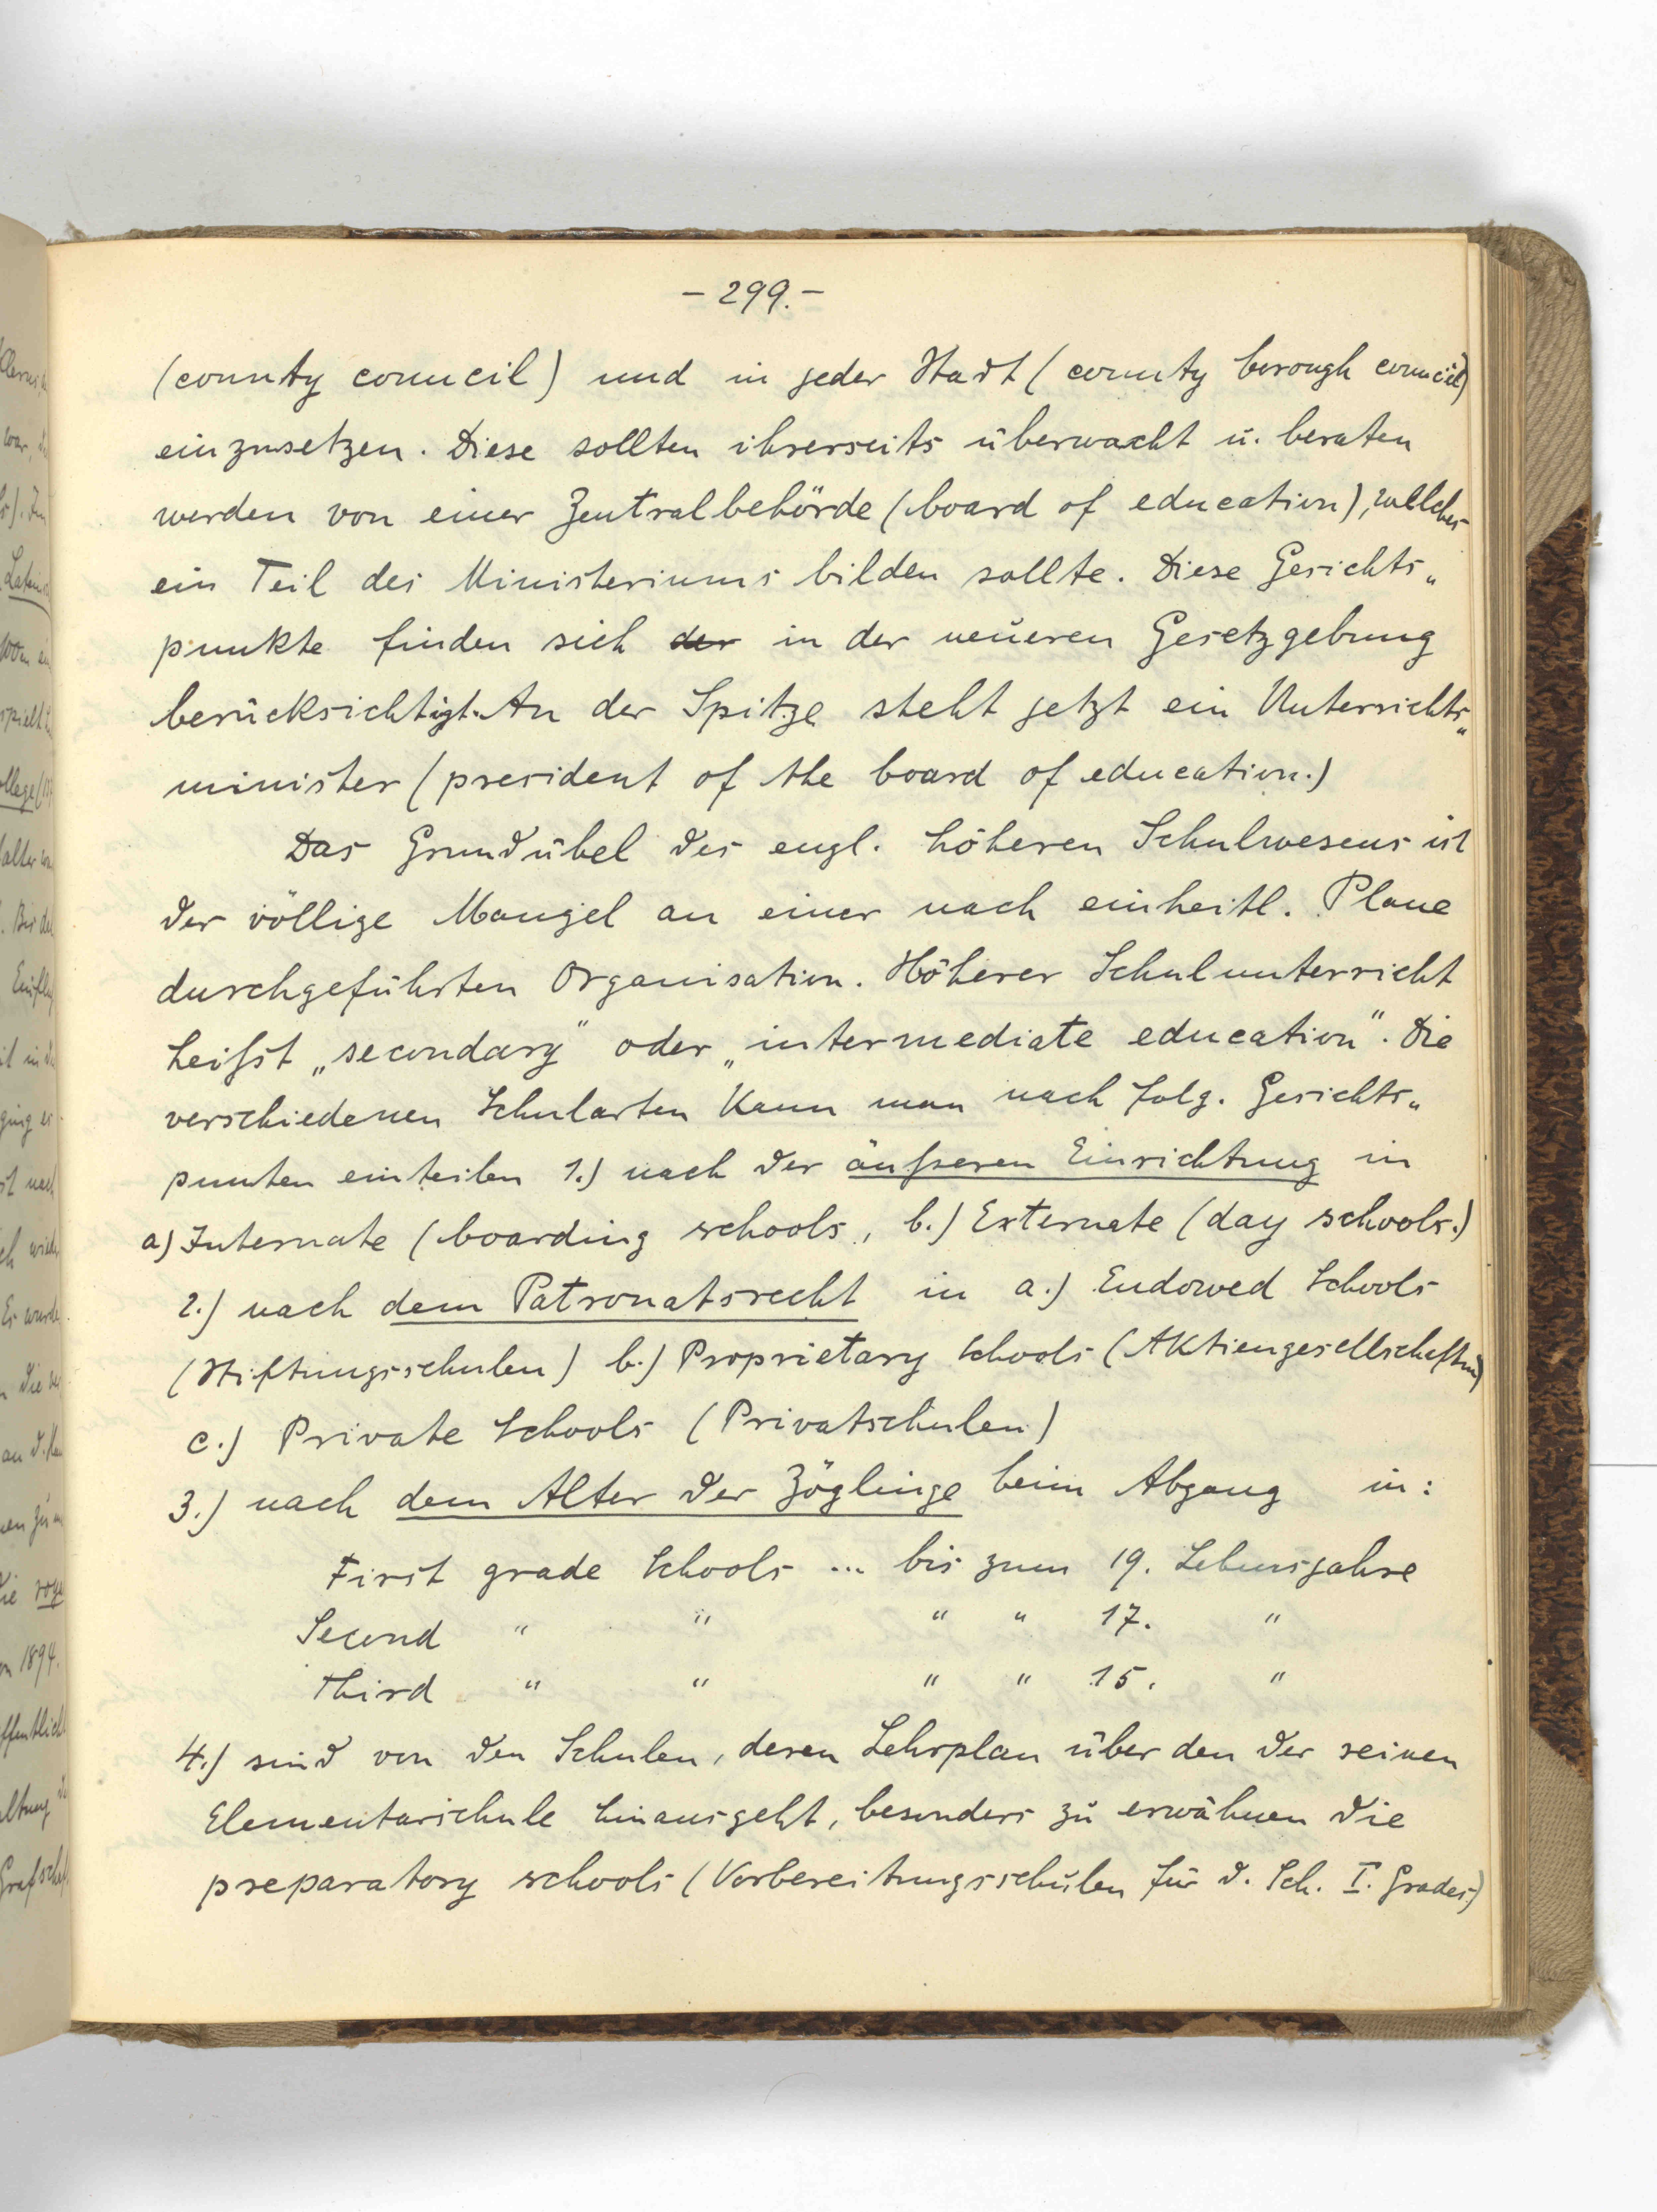 - 299. -
(county council) und in jeder Stadt (county borough council)
einzusetzen. Diese sollten ihrerseits überwacht u. beraten
werden von einer Zentralbehörde (board of education), welches
ein Teil des Ministeriums bilden sollte. Diese Gesichts„
punkte finden sich der in der neueren Gesetzgebung
berücksichtigt. An der Spitze steht jetzt ein Unterrichts„
minister (president of the board of education.)
Das Grundübel des engl. höheren Schulwesens ist
der völlige Mangel an einer nach einheitl. Plane
durchgeführten Organisation. Höherer Schulunterricht
heißt „secondary" oder „intermediate education". Die
verschiedenen Schularten kann man nach folg. Gesichts„
punkten einteilen 1.) nach der äußeren Einrichtung in
a) Internate (boarding schools, b.) Externate (day schools.)
2.) nach dem Patronatsrecht in a.) Endowed Schools
(Stiftungsschulen) b.) Proprietary Schools (Aktiengesellschaften)
c.) Private Schools (Privatschulen)
3.) nach dem Alter der Zöglinge beim Abgang in:
First grade Schools ... bis zum 19. Lebensjahre
Second " " " " 17. "
Third " " " " 15. "
4.) sind von den Schulen, deren Lehrplan über den der reinen
Elementarschule hinausgeht, besonders zu erwähnen die
preparatory schools (Vorbereitungsschulen für d. Sch. I. Grades)